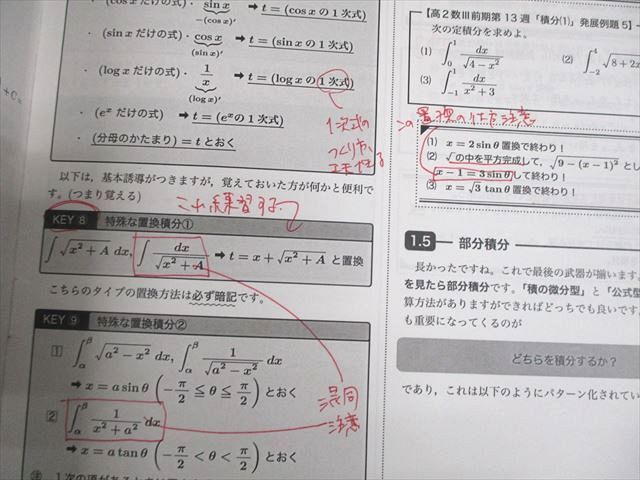 (cosxだけの式)・sinx ➡ t=(cosxの1次式)
−(cosx)′
(sinxだけの式)・cosx ➡ t=(sinxの1次式)
(sinx)′
(logxだけの式)・1/x ➡ t=(logxの1次式)
(logx)′
(eˣだけの式) ➡ t=(eˣの1次式)
(分母のかたまり)=tとおく
1次式の
つくり方
以下は，基本誘導がつきますが，覚えておいた方が何かと便利で
す。(つまり覚える)
これ練習する
KEY 8 特殊な置換積分①
∫√(x²+A) dx, ∫dx/√(x²+A) ➡ t=x+√(x²+A) と置換
こちらのタイプの置換方法は必ず暗記です。
KEY 9 特殊な置換積分②
1 ∫_α^β √(a²−x²) dx, ∫_α^β 1/√(a²−x²) dx
➡ x=a sinθ (−π/2≦θ≦π/2) とおく
2 ∫_α^β 1/(x²+a²) dx
➡ x=a tanθ (−π/2<θ<π/2) とおく
混同
注意
【高2数Ⅲ前期第13週「積分(1)」発展例題5】
次の定積分を求めよ。
(1) ∫_0^1 dx/√(4−x²) (2) ∫_{-2}^4 √(8+2x
(3) ∫_{-1}^1 dx/(x²+3)
置換の仕方注意
(1) x=2sinθ置換で終わり！
(2) √の中を平方完成して，√(9−(x−1)²) とし
x−1=3sinθして終わり！
(3) x=√3 tanθ置換で終わり！
1.5 部分積分
長かったですね。これで最後の武器が揃います。
を見たら部分積分です。「積の微分型」と「公式型
算方法がありますができればどっちでも良いです。
も重要になってくるのが
どちらを積分するか？
であり，これは以下のようにパターン化されてい